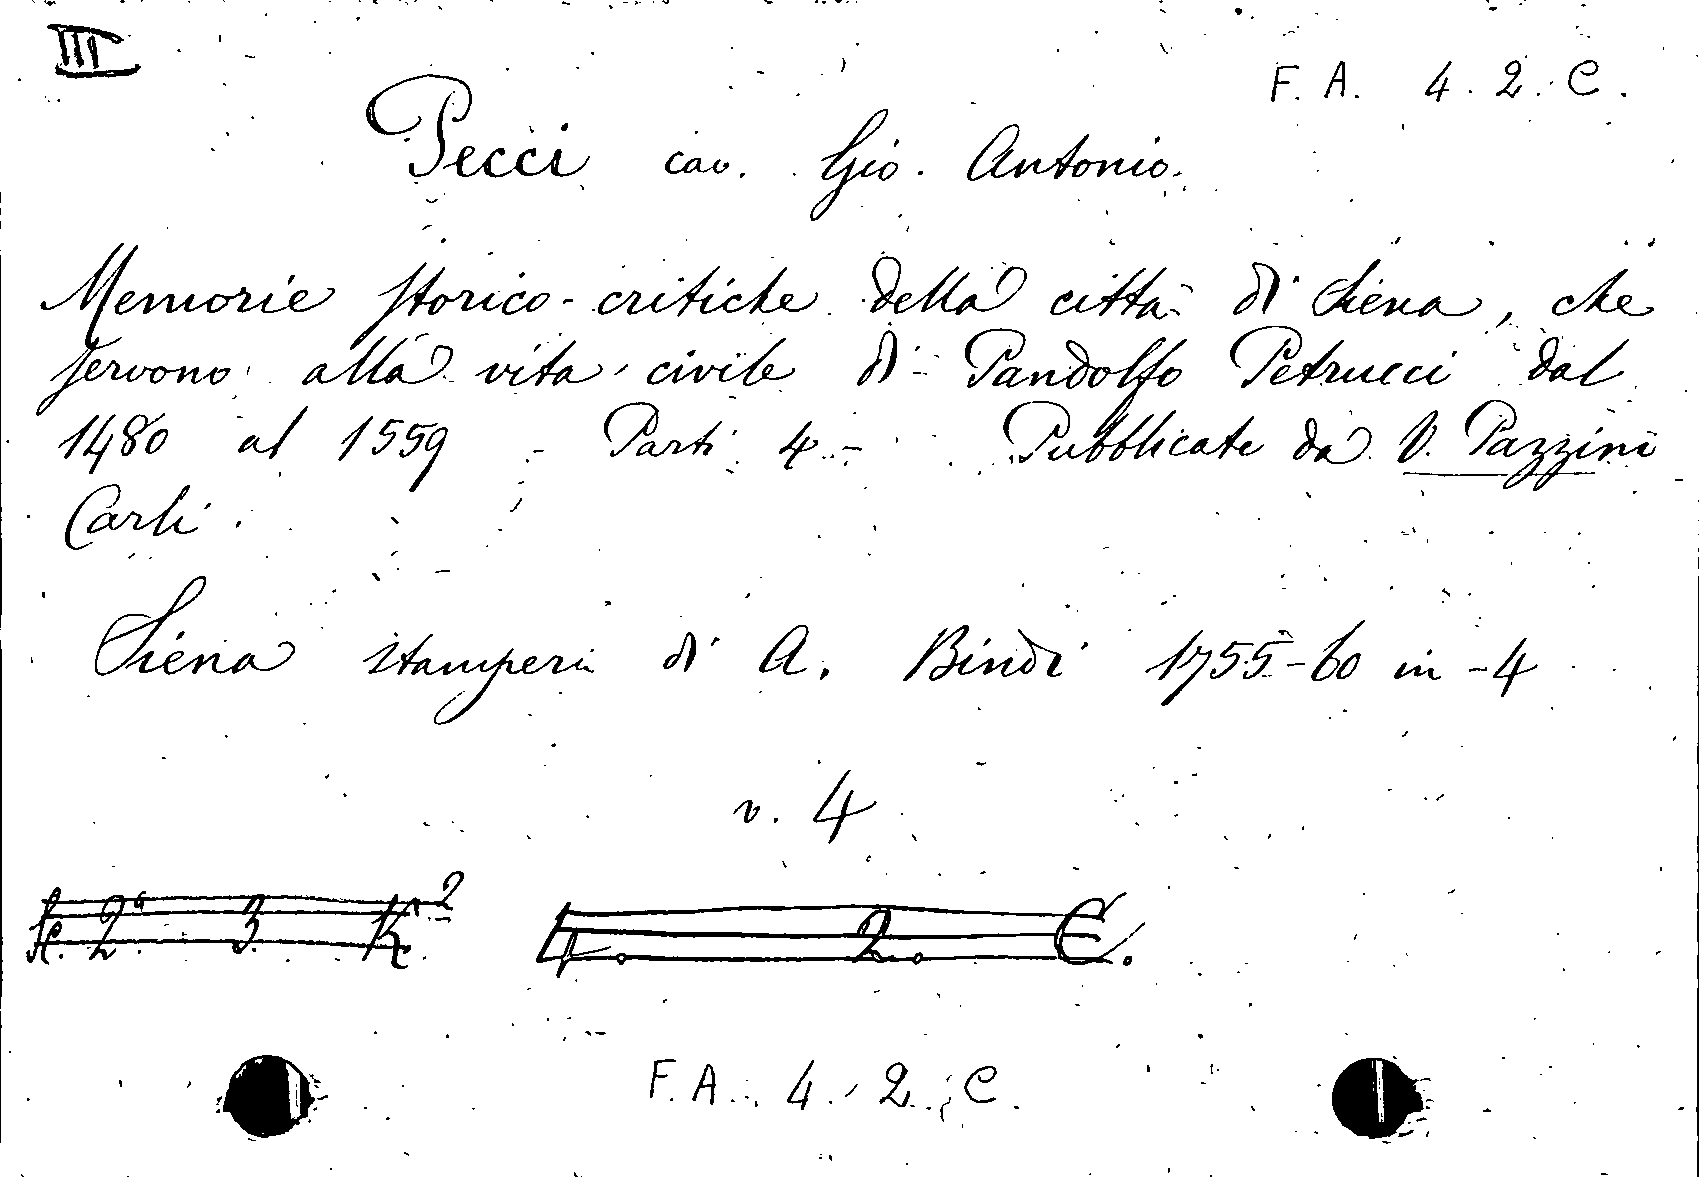 III
F. A. 4. 2. C.
Pecci cav. Gio. Antonio.
Memorie storico-critiche della città di Siena, che
servono alla vita civile di Pandolfo Petrucci dal
1480 al 1559 - Parti 4 - Pubblicate da V. Pazzini
Carli.
Siena stamperia di A. Bindi 1755-60 in-4
v. 4
2ª 3 K 2 4. 2. C.
F. A. 4. 2. C.